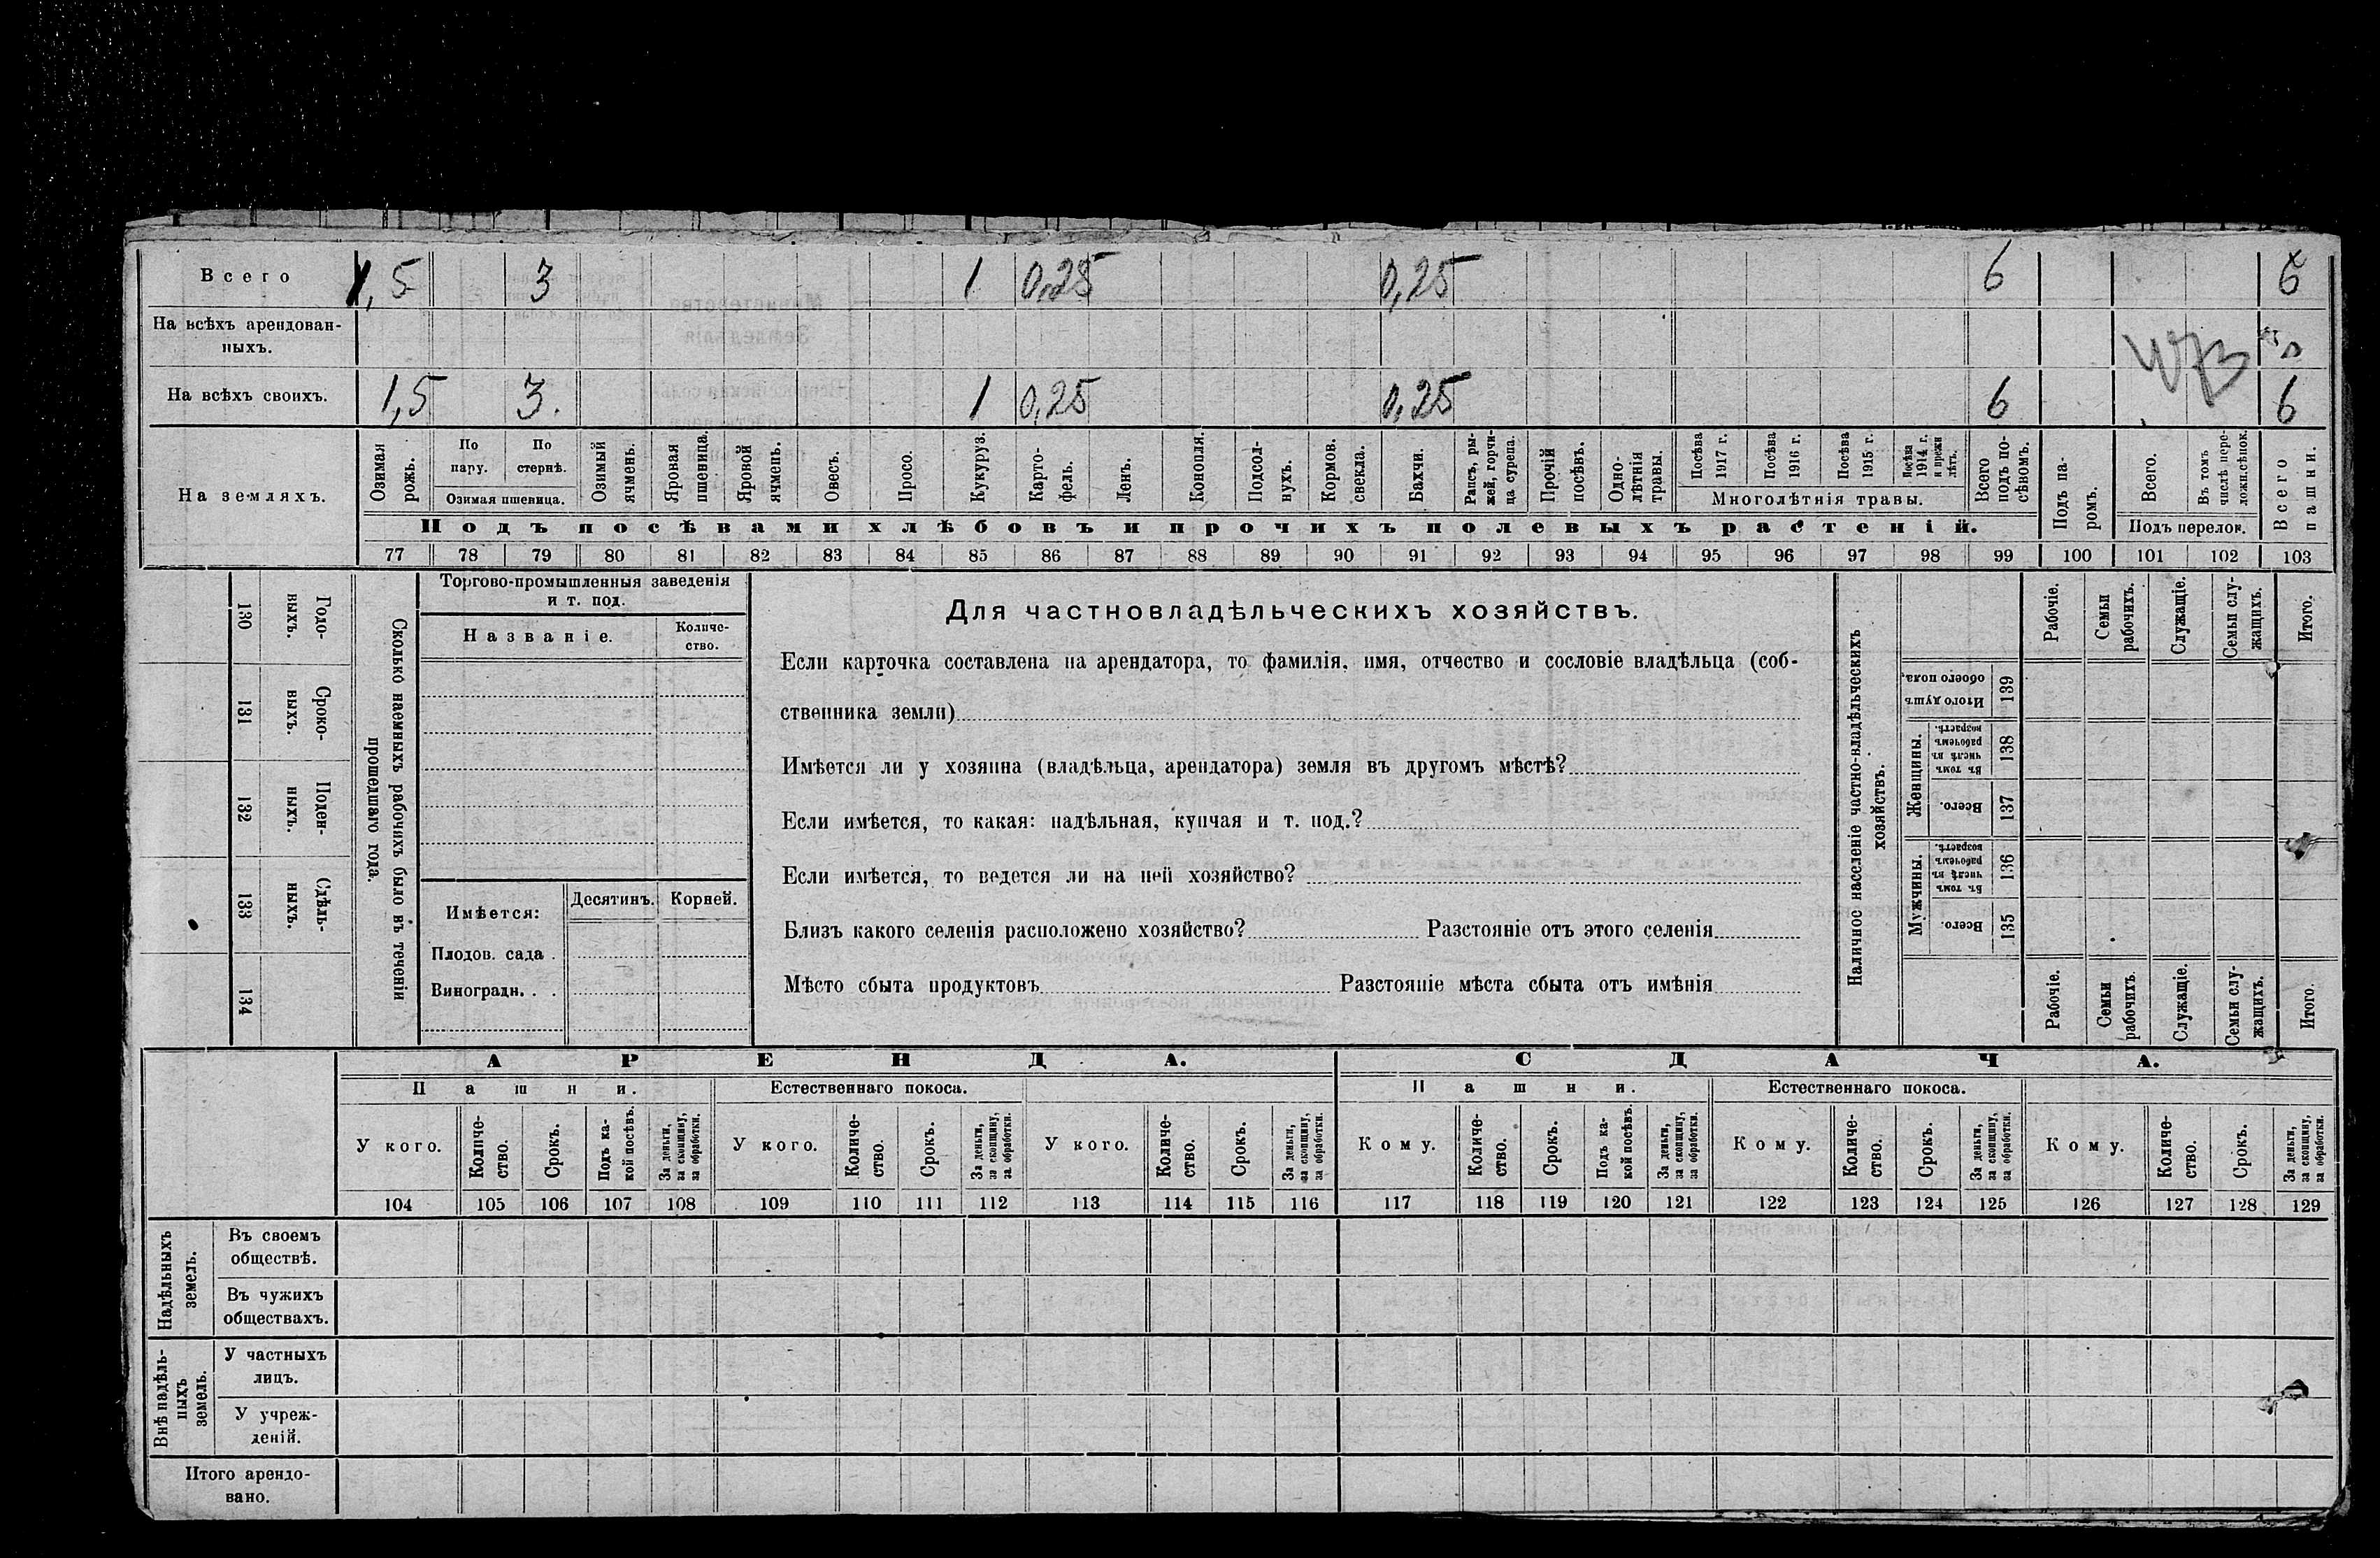 Всего 1,5 3 1 0,25 0,25 6 6
На всѣхъ арендован-
ныхъ.
На всѣхъ своихъ. 1,5 3. 1 0,25 0,25 6 6
На земляхъ.
Озимая рожь.
По пару.
По стернѣ.
Озимая пшеница.
Озимый ячмень.
Яровая пшеница.
Яровой ячмень.
Овесъ.
Просо.
Кукуруз.
Карто-
фель.
Ленъ.
Конопля.
Подсол-
нухъ.
Кормов. свекла.
Бахчи.
Рапсъ, ры-
жей, горчи-
ца сурепа.
Прочій посѣвъ.
Одно-
лѣтнія травы.
Посѣва 1917 г.
Посѣва 1916 г.
Посѣва 1915 г.
Посѣва 1914 г. и прежн лѣтъ.
Многолѣтнія травы.
Всего подъ по-
сѣвомъ.
Подъ па-
ромъ.
Всего.
Въ томъ числѣ пере-
ложн.сѣнок.
Подъ перелок.
Всего пашни.
Подъ посѣвами хлѣбовъ и прочихъ полевыхъ растеній.
77 78 79 80 81 82 83 84 85 86 87 88 89 90 91 92 93 94 95 96 97 98 99 100 101 102 103
130 Годо-
выхъ.
131 Сроко-
выхъ.
132 Поден-
ныхъ.
133 Сдѣль-
ныхъ.
134
Сколько наемныхъ рабочихъ было въ теченіи
прошедшаго года.
Торгово-промышленныя заведенія
и т. под.
Названіе.
Количе-
ство.
Имѣется:
Десятинъ. Корней.
Плодов. сада .
Виноградн. . .
Для частновладѣльческихъ хозяйствъ.
Если карточка составлена на арендатора, то фамилія, имя, отчество и сословіе владѣльца (соб-
ственника земли)
Имѣется ли у хозяина (владѣльца, арендатора) земля въ другомъ мѣстѣ?
Если имѣется, то какая: надѣльная, купчая и т. под.?
Если имѣется, то ведется ли на ней хозяйство?
Близъ какого селенія расположено хозяйство? Разстояніе отъ этого селенія
Мѣсто сбыта продуктовъ Разстояніе мѣста сбыта отъ имѣнія
Наличное населеніе частно-владѣльческихъ
хозяйствъ.
Рабочіе.
Семьи рабочихъ.
Служащіе.
Семьи слу-
жащихъ.
Итого.
Итого душъ обоего пола, 139
Женщины.
Въ томъ числѣ въ рабочемъ возрастѣ. 138
Всего. 137
Мужчины.
Въ томъ числѣ въ рабочемъ возрастѣ. 136
Всего. 135
Рабочіе.
Семьи рабочихъ
Служащіе.
Семьи слу-
жащихъ.
Итого.
АРЕНДА. СДАЧА.
Пашни. Естественнаго покоса. Пашни. Естественнаго покоса.
У кого.
Количе-
ство.
Срокъ.
Подъ ка-
кой посѣвъ.
За деньги,
за скопщину,
за обработки.
У кого.
Количе-
ство.
Срокъ.
За деньги,
за скопщину,
за обработки.
У кого.
Количе-
ство.
Срокъ.
За деньги,
за скопщину,
за обработки.
Кому.
Количе-
ство.
Срокъ.
Подъ ка-
кой посѣвъ.
За деньги,
за скопщину,
за обработки.
Кому.
Количе-
ство.
Срокъ.
За деньги,
за скопщину,
за обработки.
Кому.
Количе-
ство.
Срокъ.
За деньги,
за скопщину,
за обработки.
104 105 106 107 108 109 110 111 112 113 114 115 116 117 118 119 120 121 122 123 124 125 126 127 128 129
Надѣльныхъ
земель.
Въ своемъ
обществѣ.
Въ чужихъ
обществахъ.
Внѣ надѣль-
ныхъ
земель.
У частныхъ
лицъ.
У учреж-
деній.
Итого арендо-
вано.